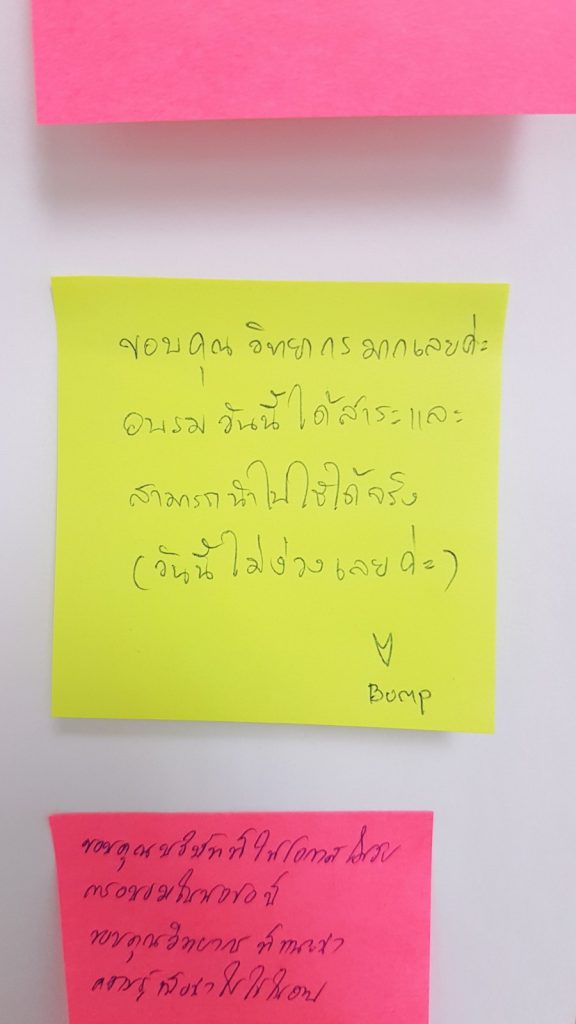 ขอบคุณ วิทยากร มากเลยค่ะ
อบรม วันนี้ ได้สาระและ
สามารถนำไปใช้ได้จริง
(วันนี้ ไม่ง่วง เลย ค่ะ)
Bump
ขอบคุณบริษัทที่ให้โอกาส
การอบรมในหัวข้อนี้
ขอบคุณวิทยากร ที่
ความรู้